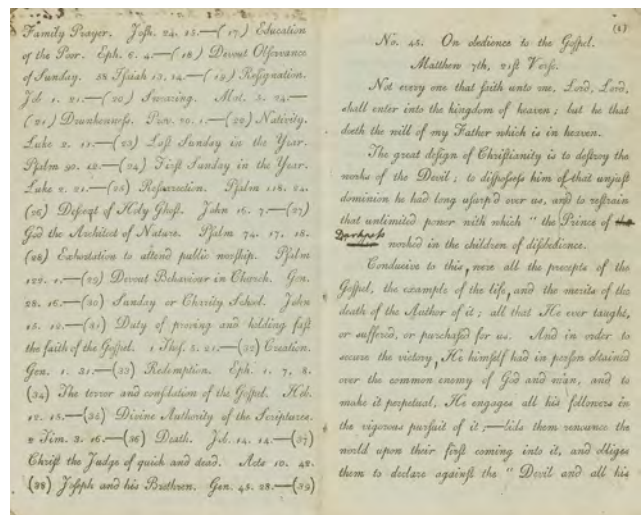 Family Prayer. Josh. 24. 15.—(17) Education
of the Poor. Eph. 6. 4.—(18) Devout Obſervance
of Sunday. 58 Iſaiah 13. 14.—(19) Reſignation.
Job 1. 21.—(20) Swearing. Mat. 5. 34.—
(21) Drunkenneſs. Prov. 20. 1.—(22) Nativity.
Luke 2. 11.—(23) Laſt Sunday in the Year.
Pſalm 90. 12.—(24) Firſt Sunday in the Year.
Luke 2. 21.—(25) Reſurrection. Pſalm 118. 24.
(26) Deſcent of Holy Ghoſt. John 16. 7.—(27)
God the Architect of Nature. Pſalm 74. 17. 18.
(28) Exhortation to attend public worſhip. Pſalm
122. 1.—(29) Devout Behaviour in Church. Gen.
28. 16.—(30) Sunday or Charity School. John
15. 12.—(31) Duty of proving and holding faſt
the faith of the Goſpel. 1 Theſ. 5. 21.—(32) Creation.
Gen. 1. 31.—(33) Redemption. Eph. 1. 7. 8.
(34) The terror and conſolation of the Goſpel. Heb.
12. 18.—(35) Divine Authority of the Scriptures.
2 Tim. 3. 16.—(36) Death. Job. 14. 14.—(37)
Chriſt the Judge of quick and dead. Acts 10. 42.
(38) Joſeph and his Brethren. Gen. 45. 28.—(39)
(1)
No. 45. On obedience to the Goſpel.
Matthew 7th, 21ſt Verſe.
Not every one that ſaith unto me, Lord, Lord,
ſhall enter into the kingdom of heaven; but he that
doeth the will of my Father which is in heaven.
The great deſign of Chriſtianity is to deſtroy the
works of the Devil; to diſpoſſeſs him of that unjuſt
dominion he had long uſurp'd over us, and to reſtrain
that unlimited power with which "the Prince of the
Darkneſs worked in the children of diſobedience.
Conducive to this, were all the precepts of the
Goſpel, the example of the life, and the merits of the
death of the Author of it; all that He ever taught,
or suffered, or purchaſed for us. And in order to
secure the victory, He himſelf had in perſon obtained
over the common enemy of God and man, and to
make it perpetual, He engages all his followers in
the vigorous purſuit of it;—bids them renounce the
world upon their firſt coming into it, and obliges
them to declare againſt the "Devil and all his